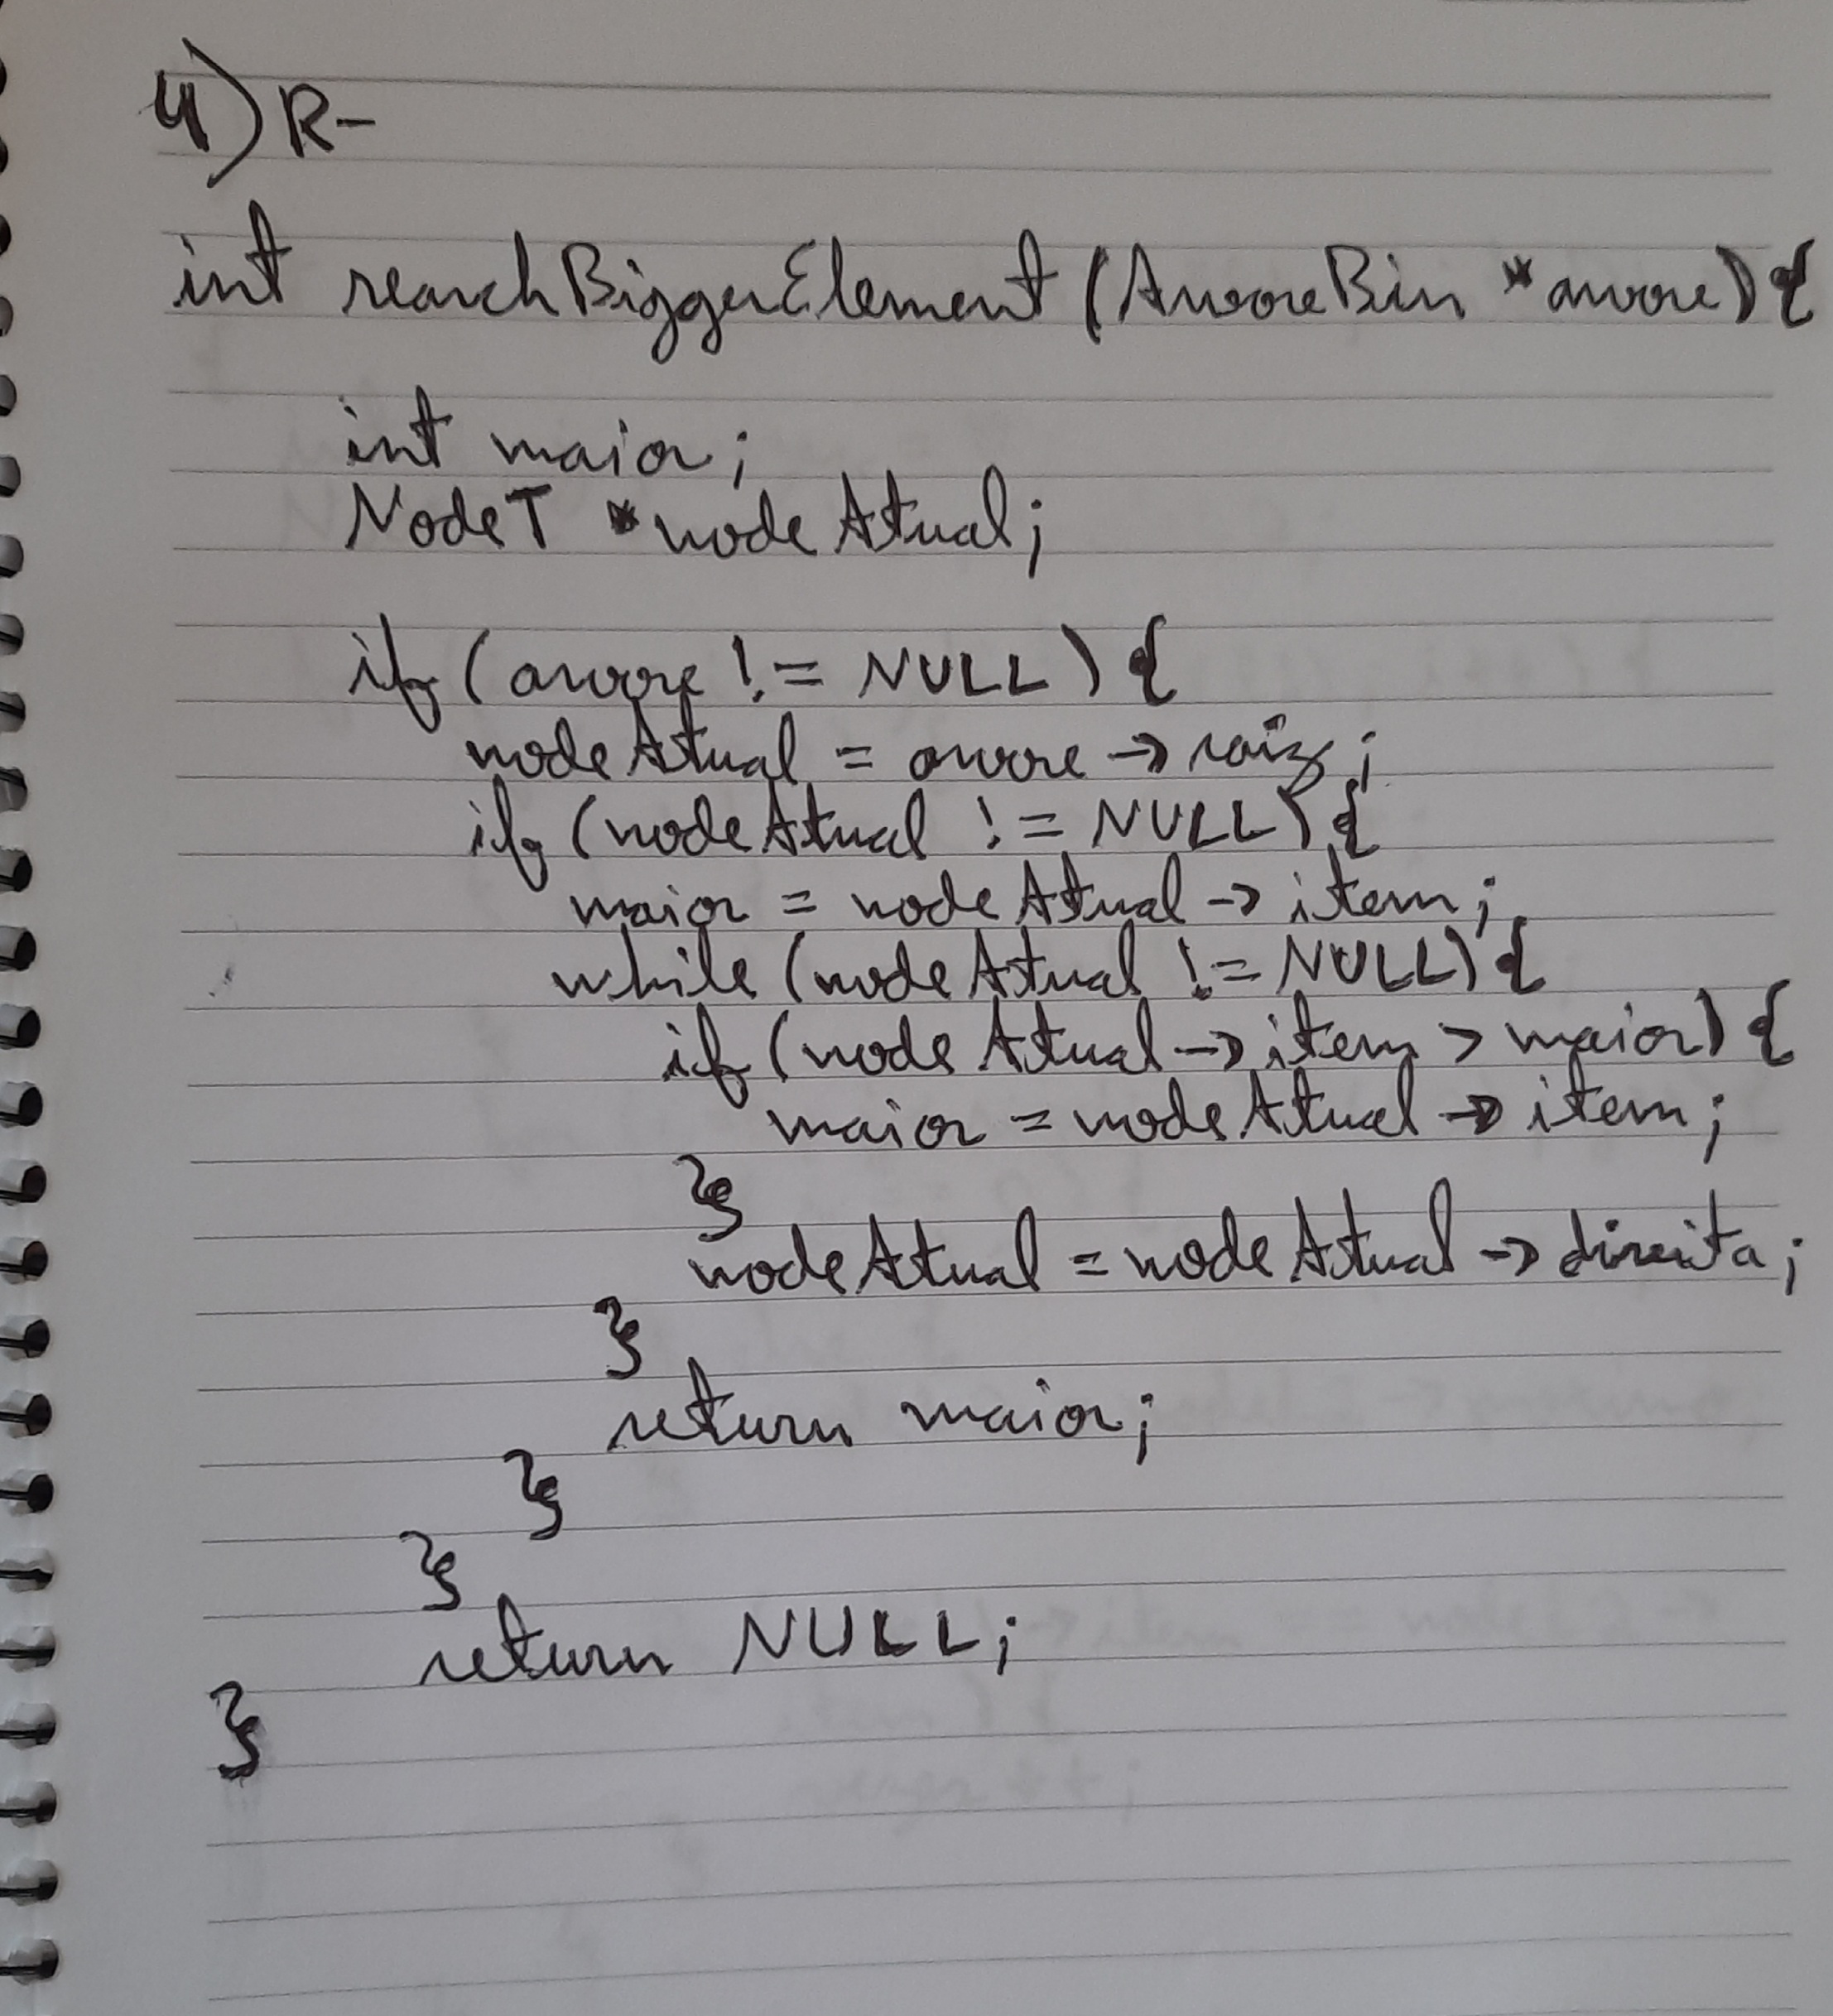 4) R-
int searchBiggerElement (ArvoreBin *arvore) {
int maior;
NodeT *nodeAtual;
if (arvore != NULL) {
nodeAtual = arvore -> raiz;
if (nodeAtual != NULL) {
maior = nodeAtual -> item;
while (nodeAtual != NULL) {
if (nodeAtual -> item > maior) {
maior = nodeAtual -> item;
}
nodeAtual = nodeAtual -> direita;
}
return maior;
}
}
return NULL;
}